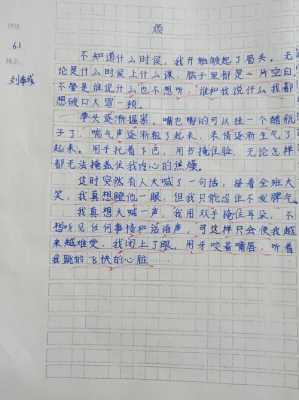 烦
6.1
不知道什么时候，我开始皱起了眉头。无
论是什么时候上什么课，脑子里都是一片空白，
不管是谁说什么也不想听，谁和我说什么我都
想破口大骂一顿。
拳头逐渐握紧，嘴巴嘟的可以挂一个醋瓶
子了，喘气声逐渐粗了起来，表情逐渐生气了
起来。用手托着下巴，用书掩住脸，无论怎样
都无法掩盖住我内心的焦燥。
这时突然有人大喊了一句话，接着全班大
笑，我真想瞪他一眼，但我只能忍住不发脾气。
我真想大喊一声，我用双手掩住耳朵，不
想听见任何事情和话语声，可这样只会使我越
来越难受，我闭上了眼。用牙咬着嘴唇，听着
我跳的飞快的心脏。